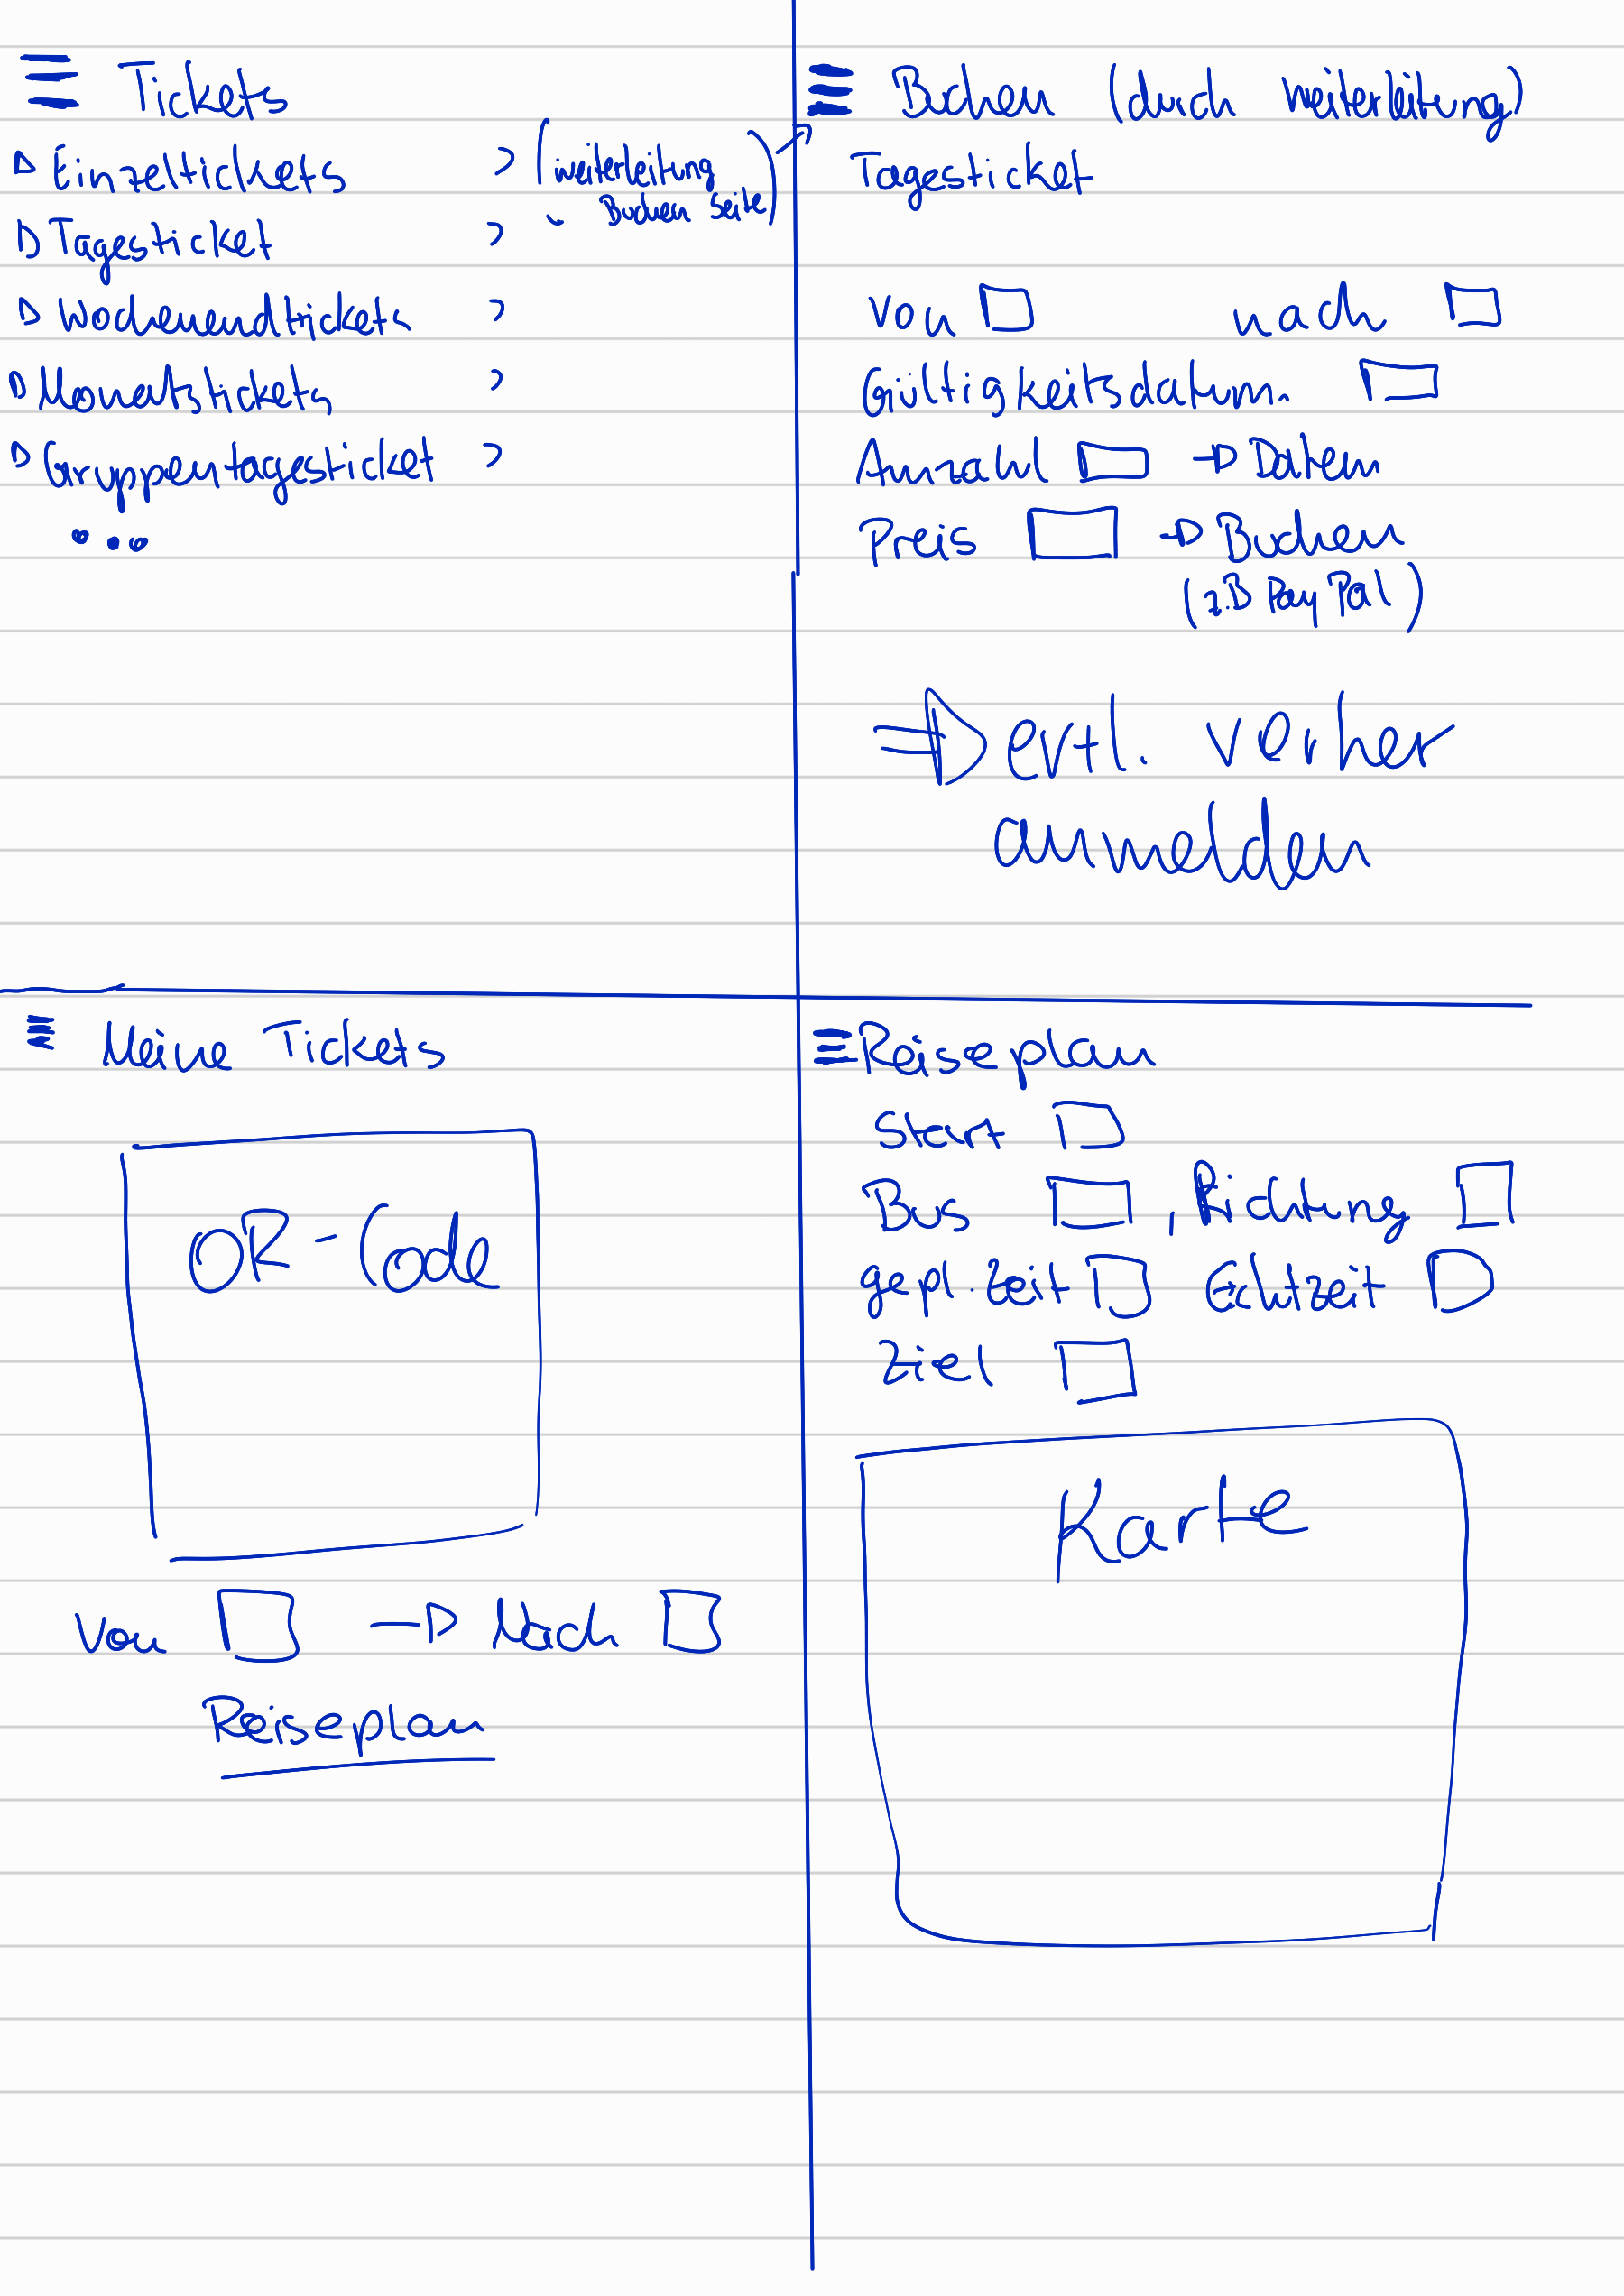 Tickets
Einzeltickets > (Weiterleitung
Buchen Seite)
Tagesticket >
Wochenendtickets >
Monatstickets >
Gruppentagesticket >
...
Buchen (durch Weiterleitung)
Tagesticket
von nach
Gültigkeitsdatum
Anzahl → Daten
Preis → Buchen
(z.B PayPal)
⇒ evtl. vorher
anmelden
Meine Tickets
QR-Code
Von → Nach
Reiseplan
Reiseplan
Start
Bus , Richtung
gepl. Zeit Echtzeit
Ziel
Karte